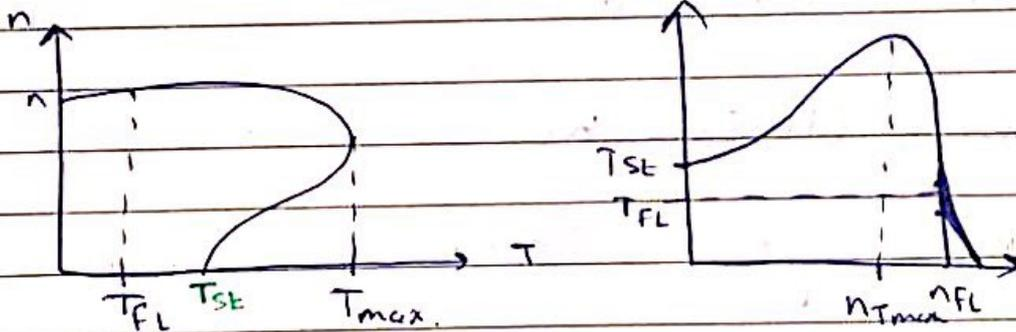 n
n
T
T_FL
T_St
T_max.
T_St
T_FL
n_Tmax
n_FL